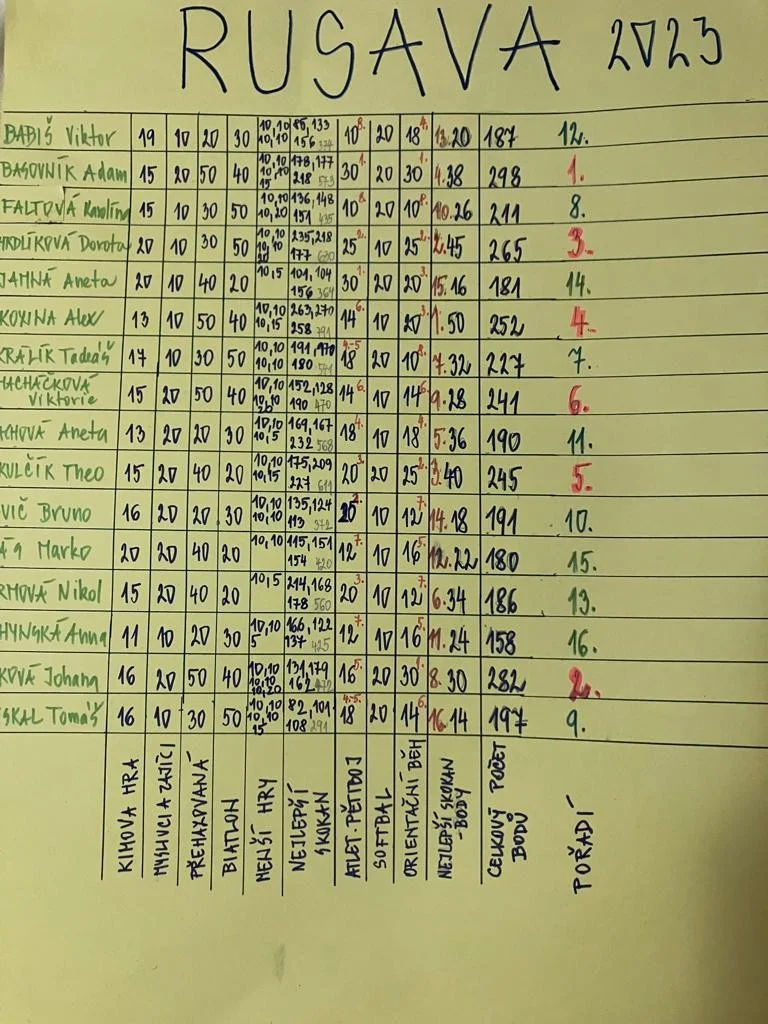 RUSAVA 2023
BABIŠ Viktor 19 10 20 30 10,10 10,10 85,133 156 374 10 8. 20 18 4. 13. 20 187 12.
BASOVNÍK Adam 15 20 50 40 10,10 10,10 15 178,177 218 573 30 1. 20 30 1. 4. 38 298 1.
FALTOVÁ Karolína 15 10 30 50 10,10 10,20 136,148 151 435 10 8. 20 10 8. 10. 26 211 8.
HRDLÍKOVÁ Dorota 20 10 30 50 10,10 10,10 20 235,218 177 630 25 2. 10 25 2. 2. 45 265 3.
JAMNÁ Aneta 20 10 40 20 10,5 101,104 156 361 30 1. 20 20 3. 15. 16 181 14.
KOXINA Alex 13 10 50 40 10,10 10,15 263,270 258 791 14 6. 10 20 3. 1. 50 252 4.
KRÁLÍK Tadeáš 17 10 30 50 10,10 10,10 191,170 180 541 18 4.-5. 20 10 8. 7. 32 227 7.
MACHÁČKOVÁ Viktorie 15 20 50 40 10,10 10,10 20 152,128 190 470 14 6. 10 14 6. 9. 28 241 6.
CHOVÁ Aneta 13 20 20 30 10,10 10,5 169,167 232 568 18 4. 10 18 4. 5. 36 190 11.
KULČÍK Theo 15 20 40 20 10,10 10,15 175,209 227 611 20 3. 20 25 2. 3. 40 245 5.
VIČ Bruno 16 20 20 30 10,10 10,10 135,124 113 372 20 2. 10 12 7. 14. 18 191 10.
Marko 20 20 40 20 10,10 115,151 154 420 12 7. 10 16 5. 12. 22 180 15.
RMOVÁ Nikol 15 20 40 20 10,5 214,168 178 560 20 3. 10 12 7. 6. 34 186 13.
HYNSKÁ Anna 11 10 20 30 10,10 5 166,122 137 425 12 7. 10 16 5. 11. 24 158 16.
KOVÁ Johana 16 20 50 40 10,10 10,10 10,20 131,179 162 472 16 5. 20 30 1. 8. 30 282 2.
SKAL Tomáš 16 10 30 50 10,10 10,10 15 82,101 108 291 18 4.-5. 20 14 6. 16. 14 197 9.
KIMOVA HRA
MYSLIVCI A ZAJÍCI
PŘEHAZOVANÁ
BIATLON
MENŠÍ HRY
NEJLEPŠÍ SKOKAN
ATLET. PĚTIBOJ
SOFTBAL
ORIENTAČNÍ BĚH
NEJLEPŠÍ SKOKAN - BODY
CELKOVÝ POČET BODŮ
POŘADÍ